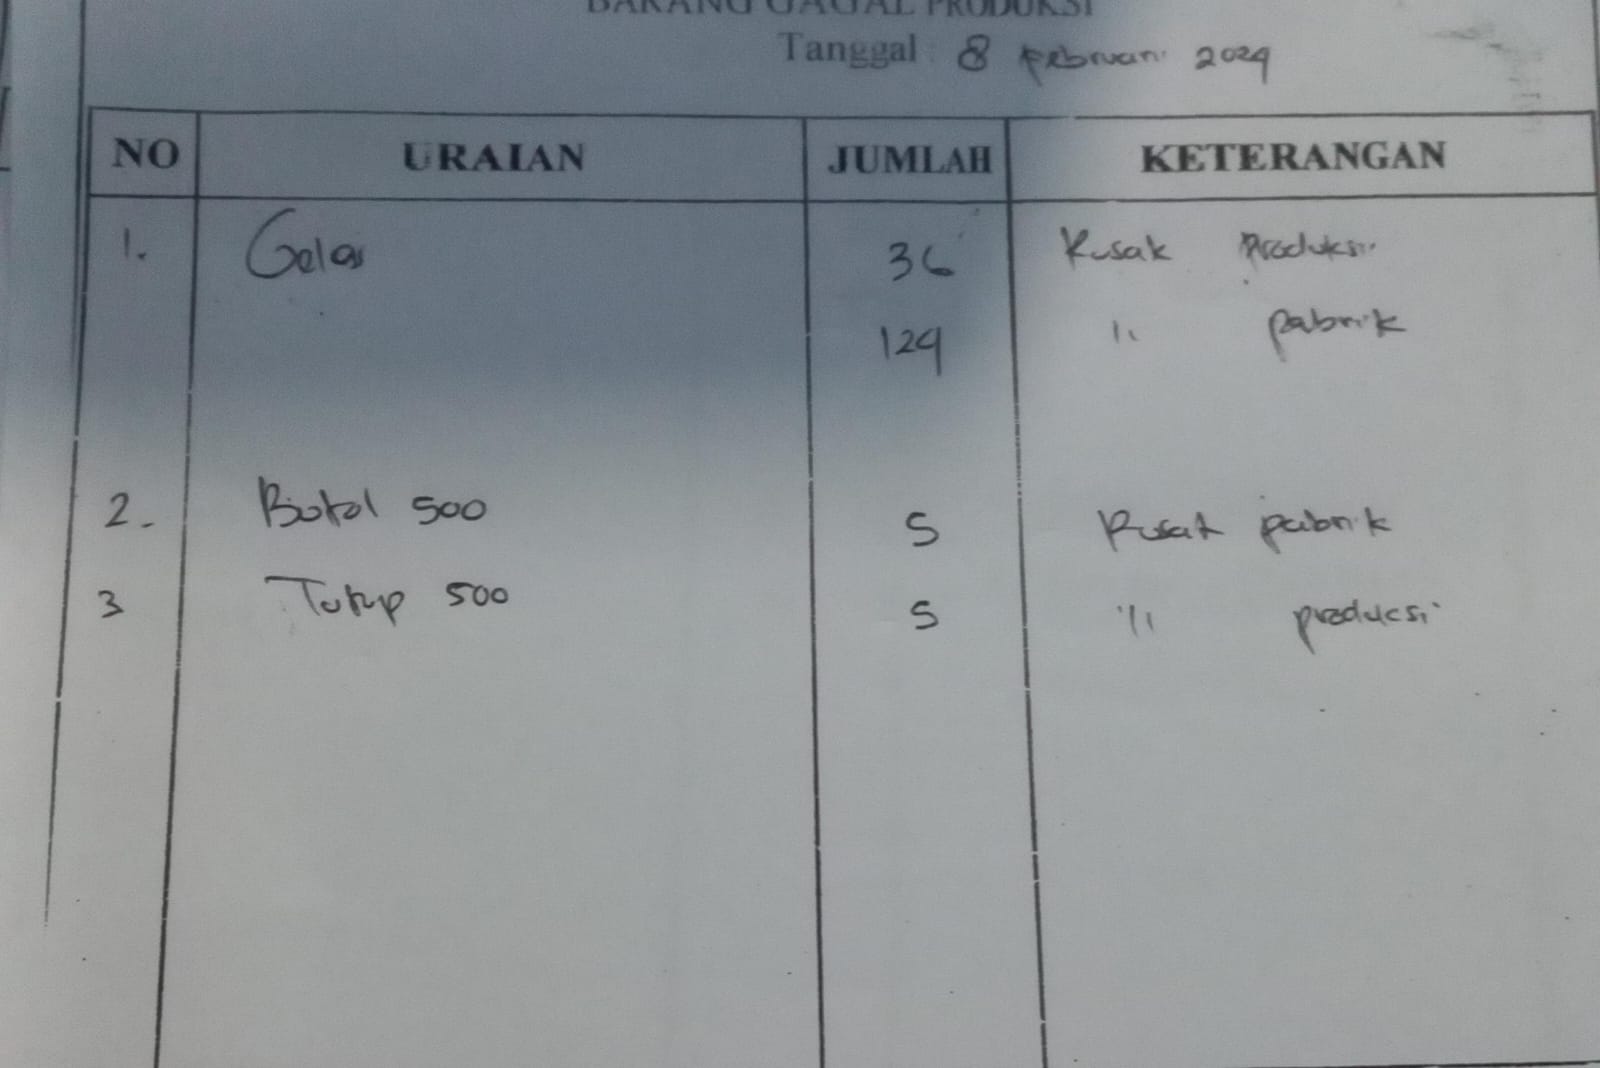 BARANG GAGAL PRODUKSI
Tanggal : 8 Februari 2024
NO URAIAN JUMLAH KETERANGAN
1. Gelas 36 Rusak Produksi
124 11 pabrik
2. Botol 500 5 Rusak pabrik
3 Tutup 500 5 11 produksi